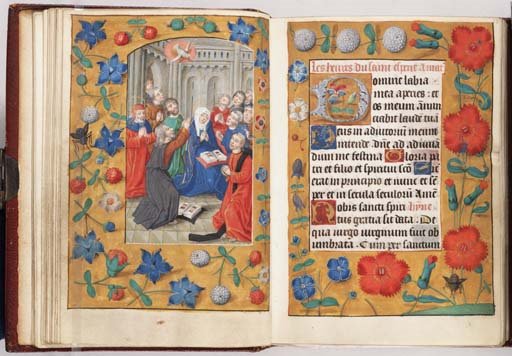 Les heures du saint esperit A mat
Domine labia
mea aperies: et
os meum anun
ciabit laudē tuā
Deus in adiutoriū meum
intende. dn̄e ad adiuuā
dum me festina Gloria pa
tri et filio et spiritui scō Sic
erat in principio et nunc et se
per et in secula seculorū Amē
Nobis sancti spiri hyne
tus gratia sit data: De
qua uirgo uirginum fuit ob
umbrata. Cum per sanctum